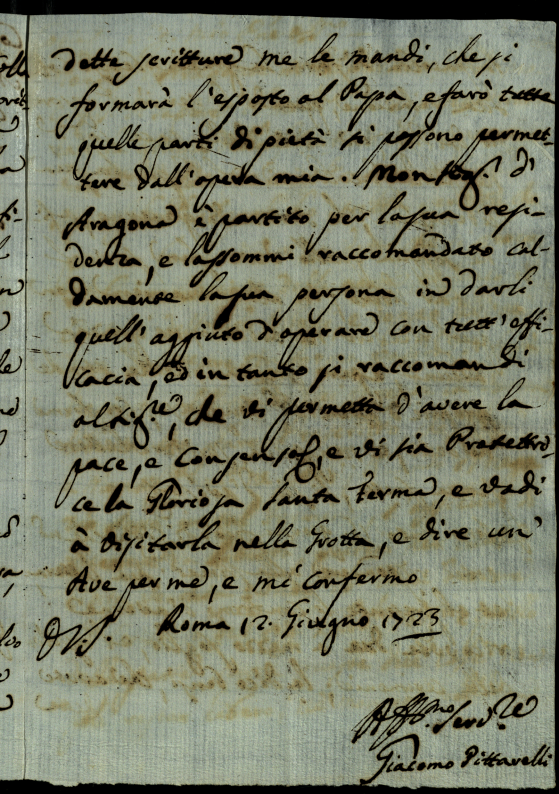 dette scritture me le mandi, che si
formarà l'esposto al Papa, e farò tutte
quelle parti di pietà si possono permet-
tere dall'opera mia. Monsig.r d'
Aragona è partito per la sua resi-
denza, e lassommi raccomandato cal-
damente la sua persona in darli
quell'aggiuto d'operare con tutt'effi-
cacia, ed in tanto si raccomandi
al Sig.re, che vi permetta d'avere la
pace, e consenso, e vi sia Protettri-
ce la Gloriosa Santa ferma, e vadi
à visitarla nella Grotta, e dire un'
Ave per me, e mi confermo
DVS. Roma 12. Giugno 1723
Aff.mo Serv.re
Giacomo Pittarelli